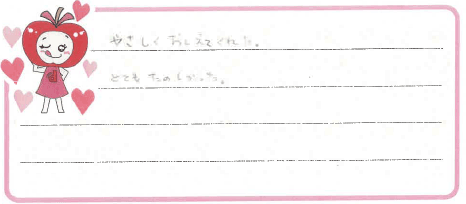 やさしく おしえてくれた。
とても たのしかった。